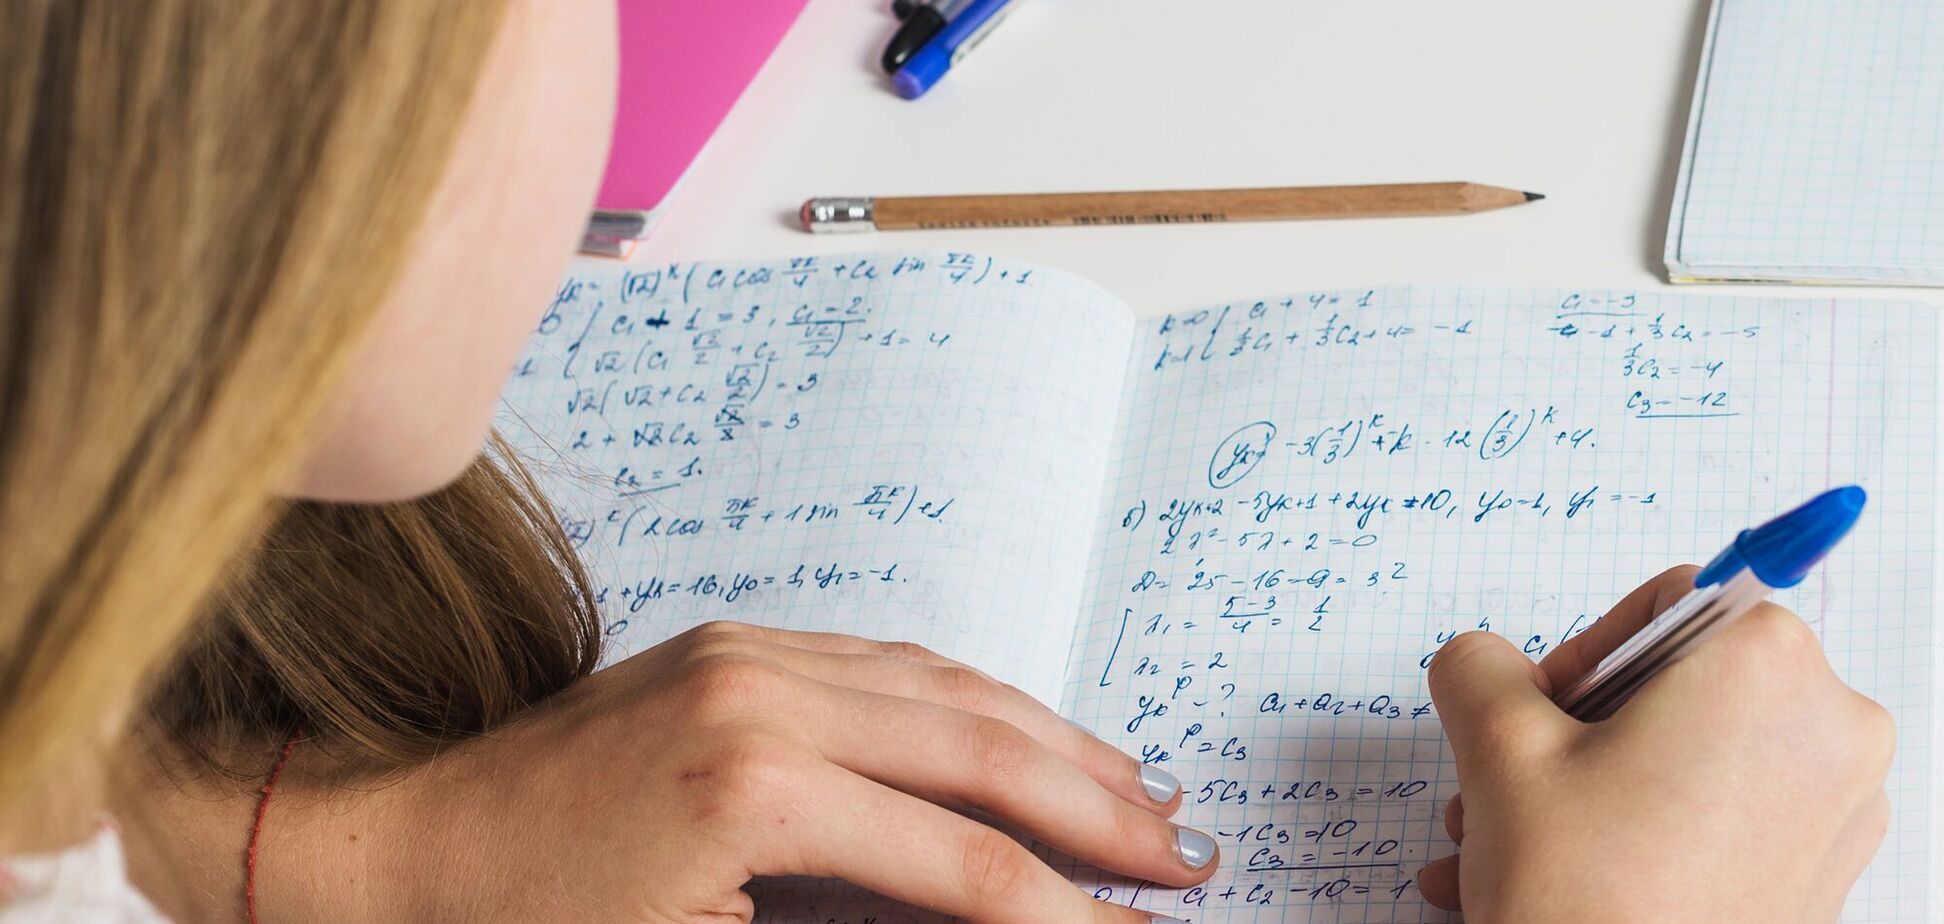 yk = (√2)^k ( c1 cos πk/4 + c2 sin πk/4 ) + 1
0 { c1 + 1 = 3, c1 = 2.
1 { √2 ( c1 √2/2 + c2 √2/2 ) + 1 = 4
√2 ( √2 + c2 √2/2 ) = 3
2 + √2 c2 √2/2 = 3
c2 = 1.
( 2 cos πk/4 + 1 sin πk/4 ) + 1.
1 + yk = 16, y0 = 1, y1 = -1.
0
k=0 { c1 + 4 = 1
k=1 { 1/3 c1 + 1/3 c2 + 4 = -1
c1 = -3
-1 + 1/3 c2 = -5
1/3 c2 = -4
c3 = -12
yk = -3 (1/3)^k + k - 12 (1/3)^k + 4.
б) 2yk+2 - 5yk+1 + 2yk = 10, y0=1, y1 = -1
2λ² - 5λ + 2 = 0
D = 25 - 16 = 9 = 3²
[ λ1 = 5-3/4 = 1/2
λ2 = 2
c1 (
yk^p - ? a1 + a2 + a3 ≠
yk^p = c3
- 5c3 + 2c3 = 10
-1c3 = 10
c3 = -10.
{ c1 + c2 - 10 = 1